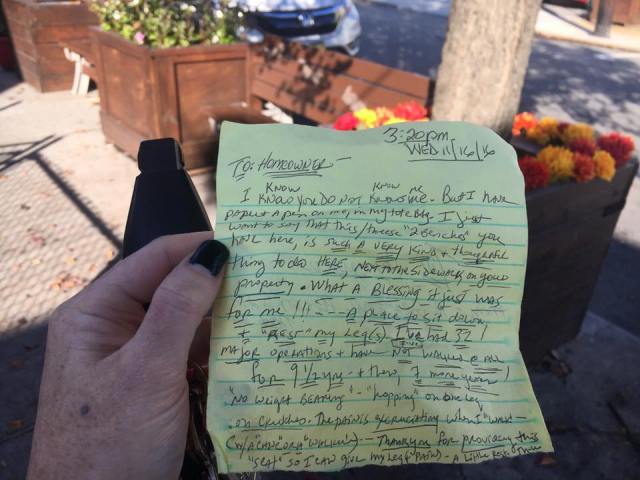 3:20pm
WED 11/16/16
TO: HOMEOWNER -
KNOW know me
I KNOW YOU DO NOT KNOW ME - BUT I HAVE
paper & pen on me, in my tote bag. I just
want to say that this/these "2 Benches" you
have here, is such A VERY Kind & thoughtful
thing to do HERE, NEXT TO the SIDEWALK on your
property. WHAT A BLESSING it just was
for me!!! --- A place to sit down,
& "REST" my LEG(S) I've had 32!
MAJOR operations & have NOT walked @ all
for 9 1/2 yrs - & then, 7 more years!
"NO weight BEARING" - "hopping" on one leg
on crutches. The PAIN is excruciating when I "walk" -
(w/a "CANE" or a "WALKER") - THANK you for providing this
"SEAT" so I can give my Legs "PAINS" - A little Rest